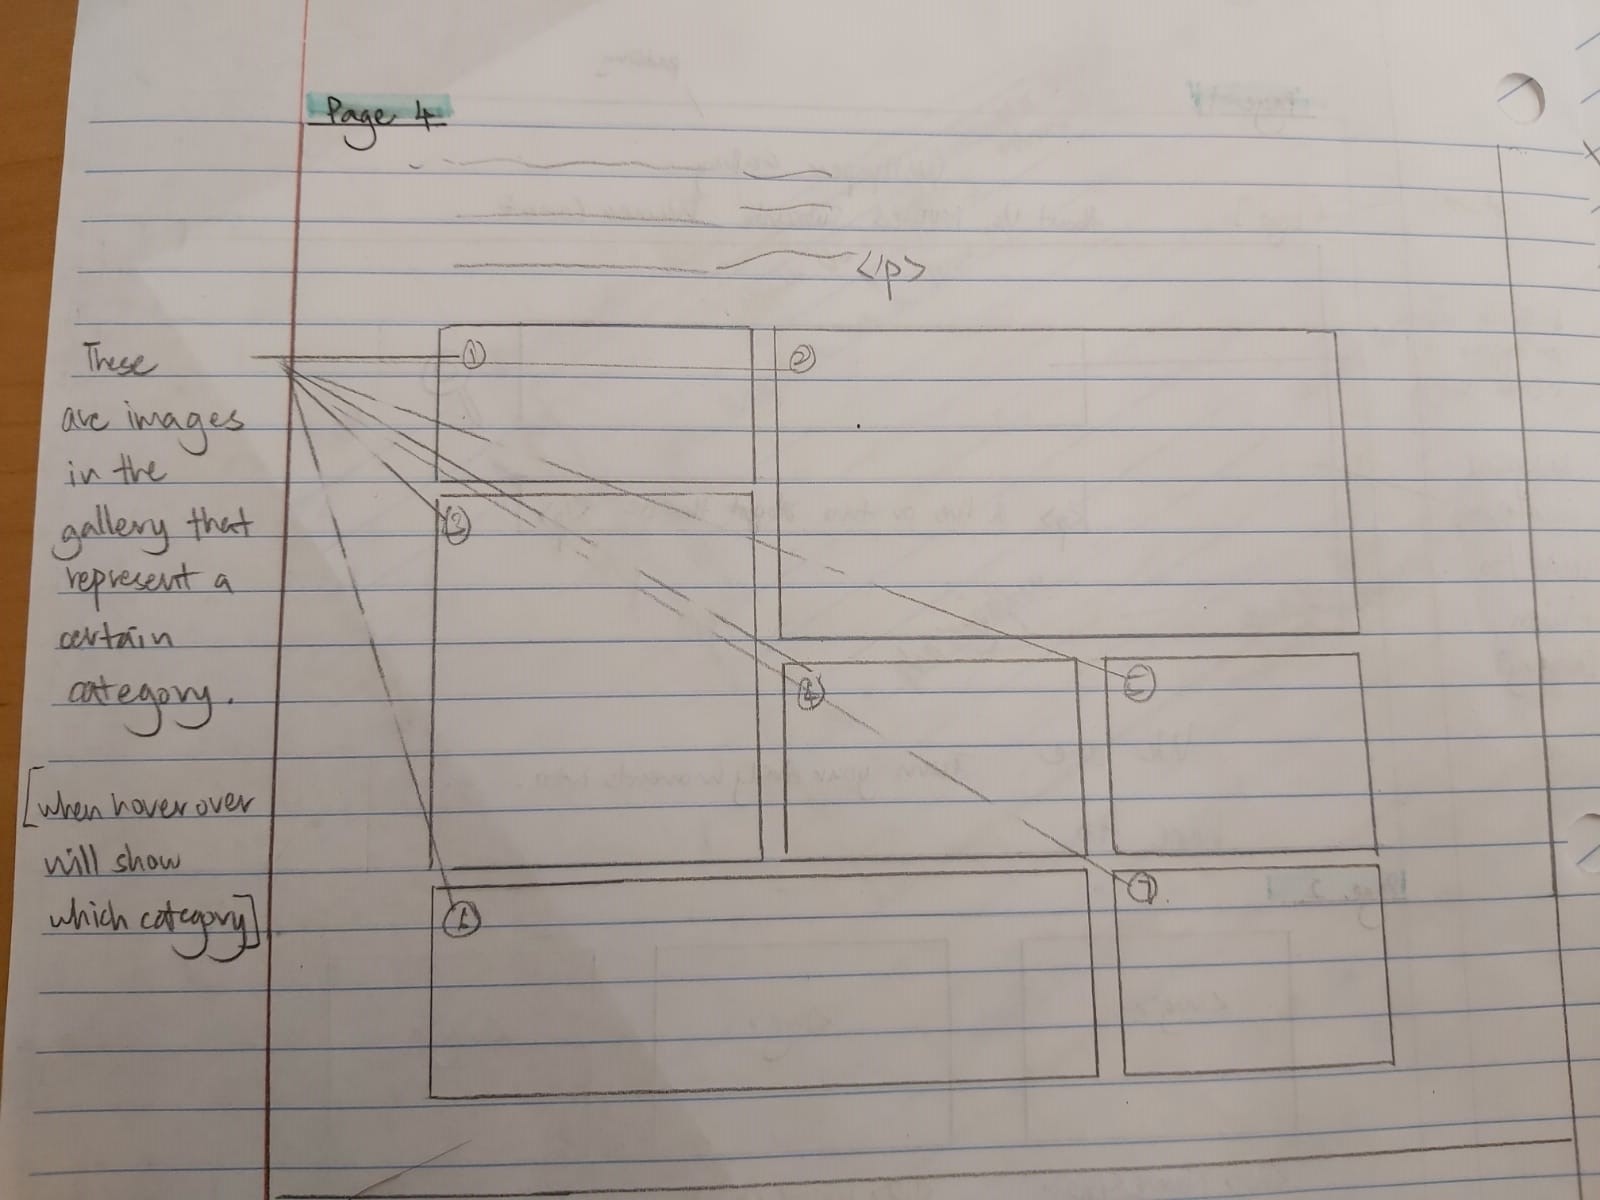 Page 4
</p>
These
are images
in the
gallery that
represent a
certain
category.
[when hover over
will show
which category]
1
2
3
4
5
6
7